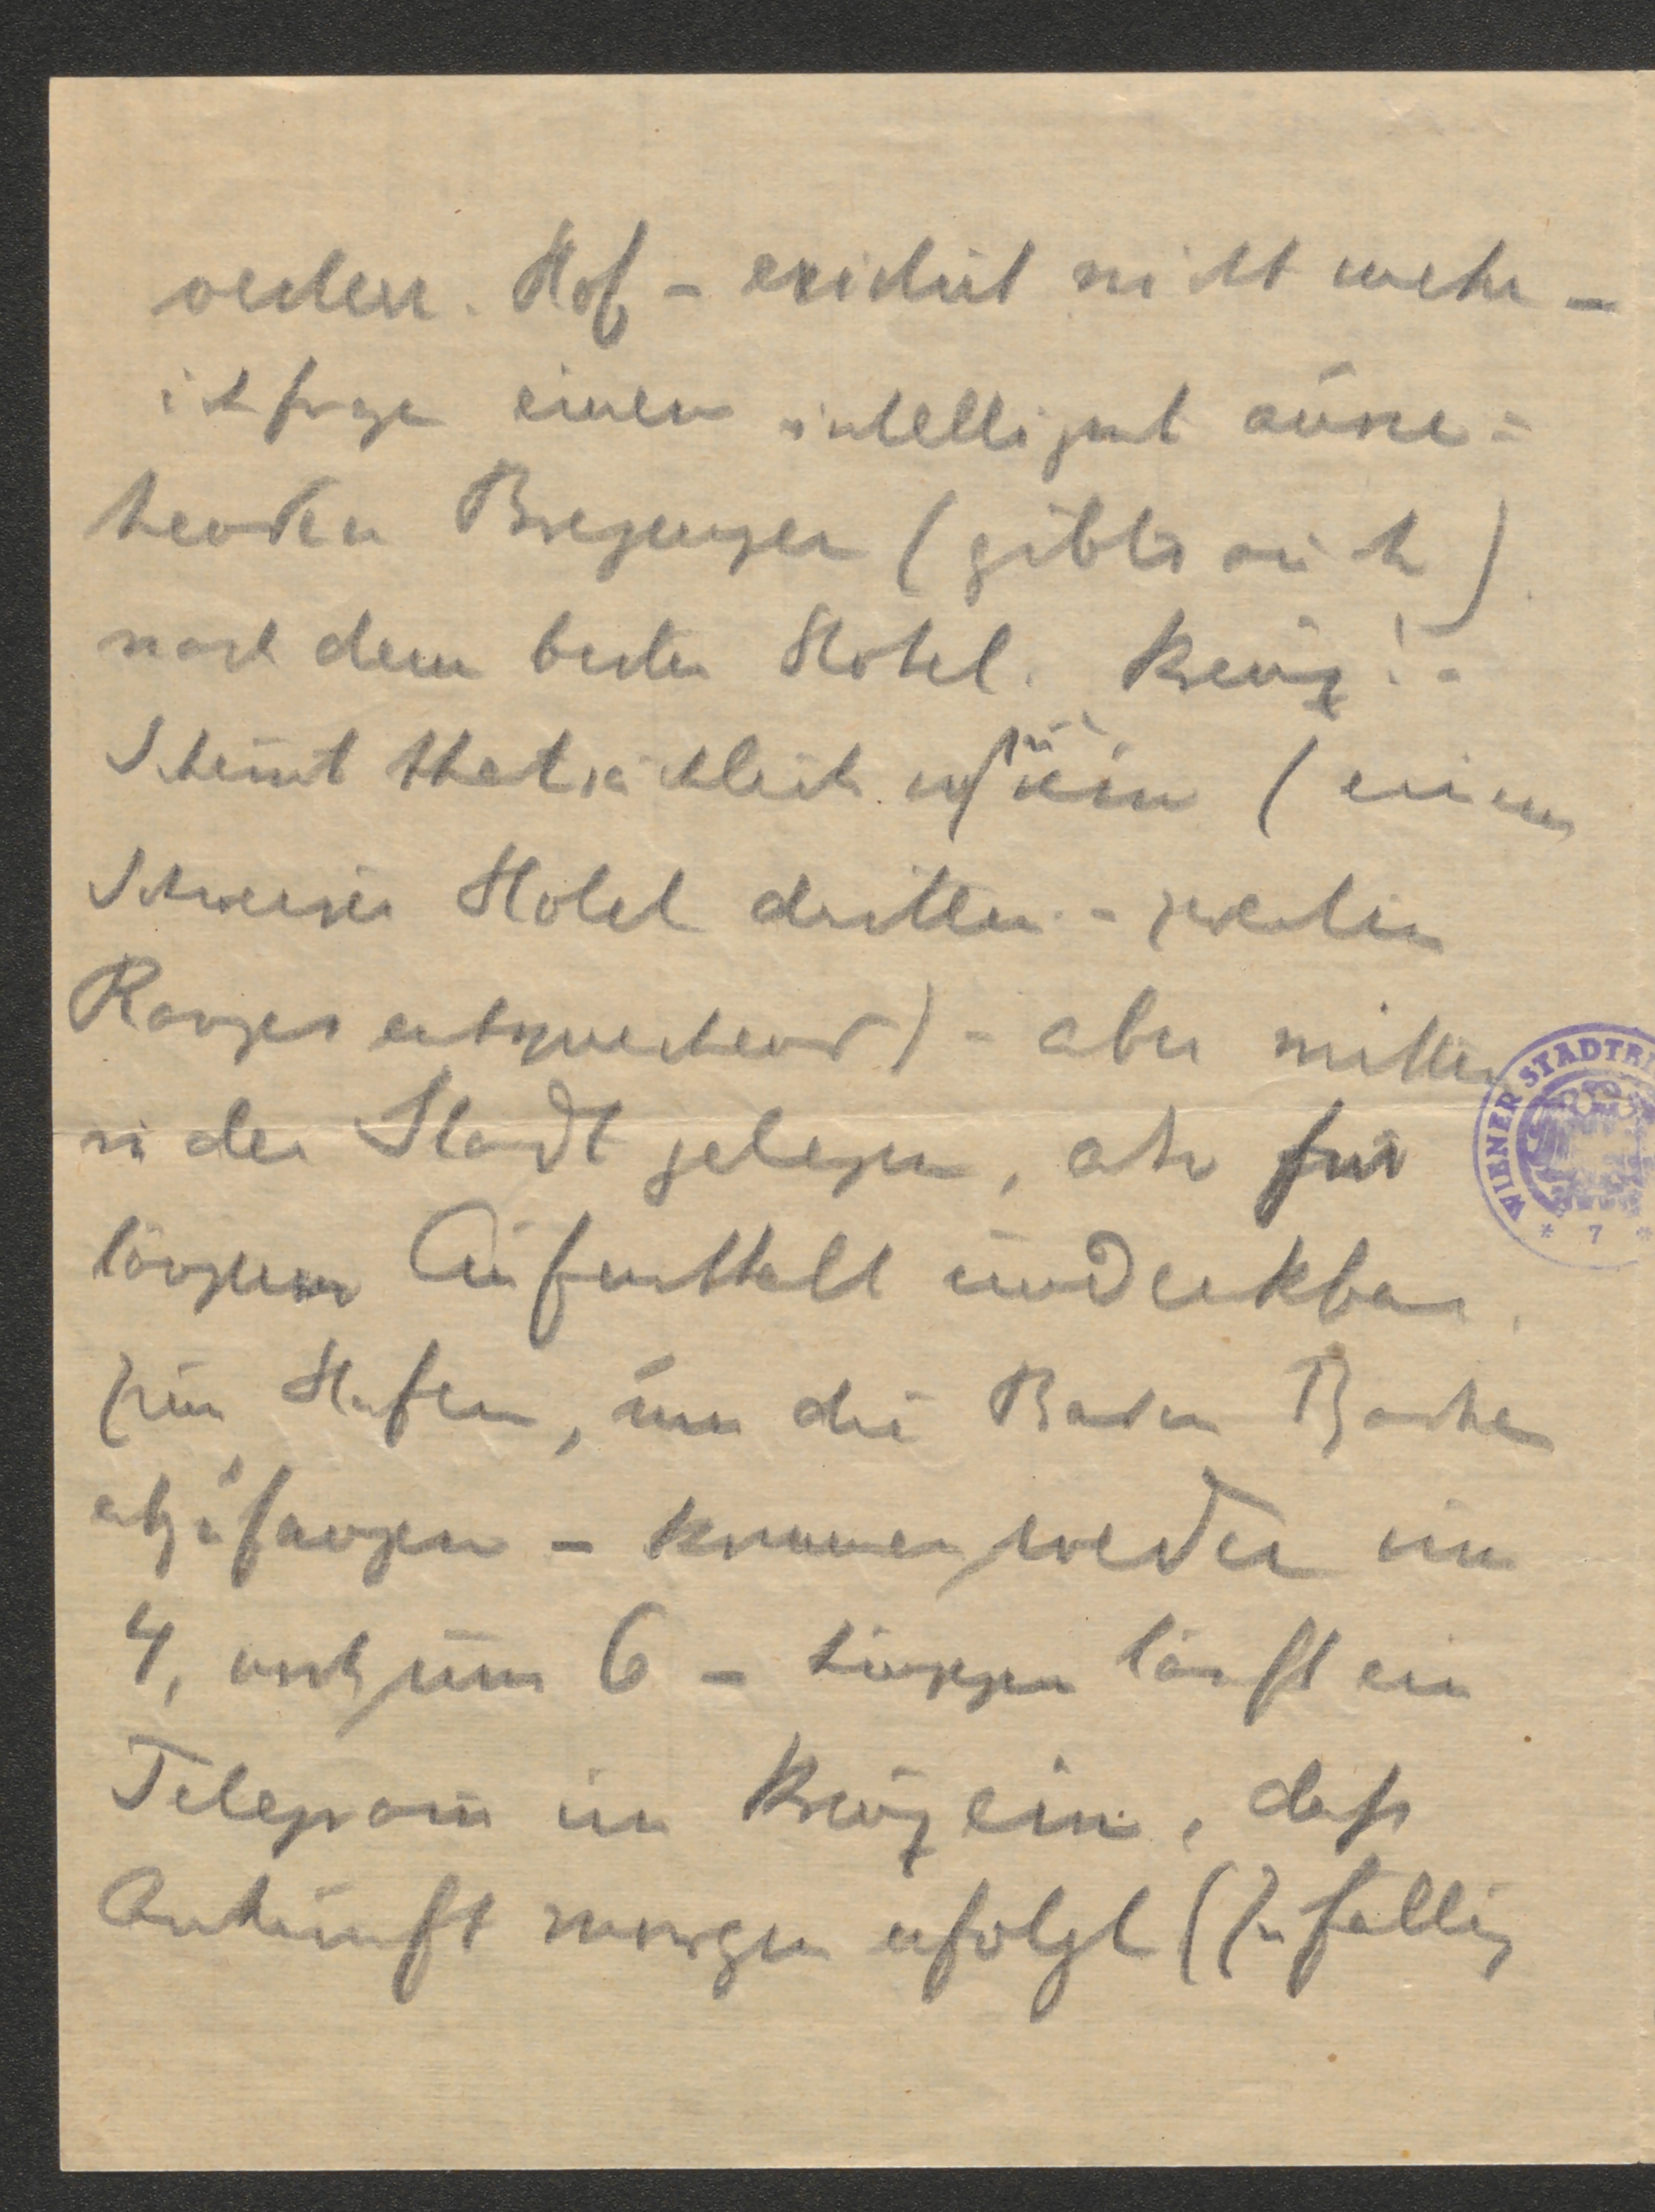 oesterr. Hof – existirt nicht mehr –
ich frage einen intelligent ausse=
henden Bregenzer (gibts auch)
nach dem besten Hotel. Kreuz! –
Scheint thatsächlich zu sein (einem
Schweizer Hotel dritten – zweiten
Ranges entsprechend) – aber mitten
in der Stadt gelegen, also für
längern Aufenthalt undenkbar.
Zum Hafen, um die Baden Badner
abzufangen – kommen weder um
4, noch um 6 – hingegen läuft ein
Telegram im Kreuz ein, daß
Ankunft morgen erfolgt (Zufällig
WIENER STADTBI
* 7 *